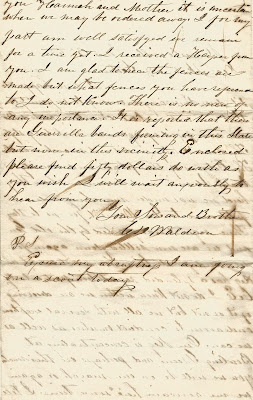 you Hannah and Mother it is uncertain
when we may be ordered away. I for my
part am well satisfied to remain
for a time yet. I received a Harper from
you. I am glad to hear the fences are
made but what fences you have reference
to I do not know. There is no news of
any importance. It is reported that there
are Guerrilla bands forming in this State
but none in this vicinity. Enclosed
please find fifty dollars do with as
you wish I will wait anxiously to
hear from you.
Your Son and Brother
Waldron
P. S.
Excuse my abruptness I am going
on a scout today